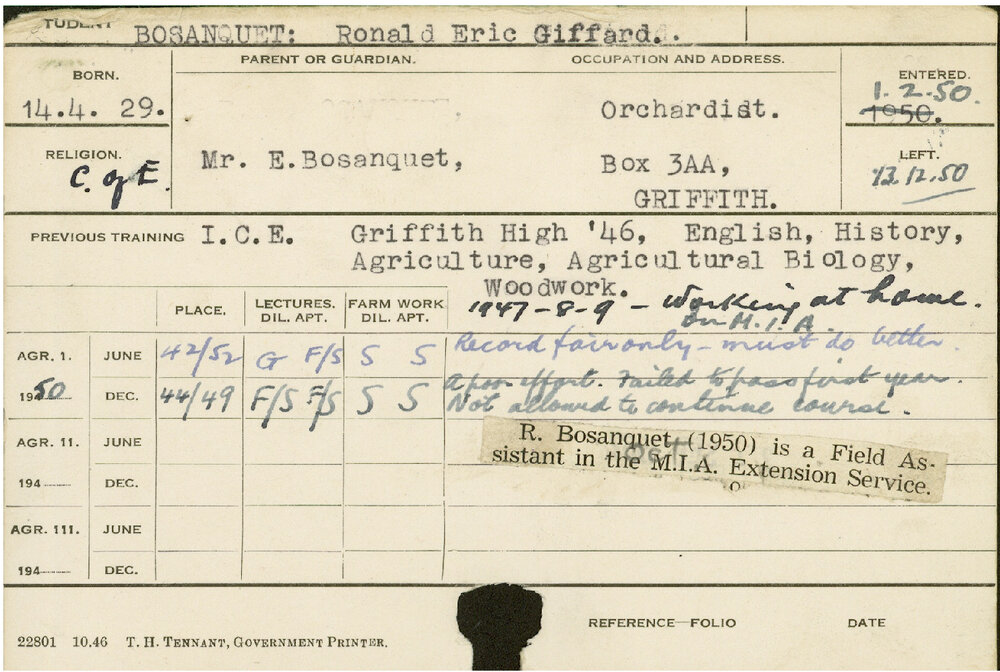 TUDENT BOSANQUET: Ronald Eric Giffard..
BORN. PARENT OR GUARDIAN. OCCUPATION AND ADDRESS. ENTERED.
14.4. 29. Orchardist. 1.2.50. 1950.
RELIGION. C. of E. Mr. E.Bosanquet, Box 3AA, LEFT. 13.12.50
GRIFFITH.
PREVIOUS TRAINING I.C.E. Griffith High '46, English, History,
Agriculture, Agricultural Biology,
Woodwork.
1947-8-9 - Working at home.
on M.I.A.
PLACE. LECTURES. FARM WORK
DIL. APT. DIL. APT.
AGR. 1. JUNE 42/52 G F/S S S Record fair only - must do better.
1950 DEC. 44/49 F/S F/S S S A poor effort. Failed to pass first year.
Not allowed to continue course.
AGR. 11. JUNE
R. Bosanquet (1950) is a Field As-
sistant in the M.I.A. Extension Service.
OCT
194 DEC.
AGR. 111. JUNE
194 DEC.
REFERENCE—FOLIO DATE
22801 10.46 T. H. TENNANT, GOVERNMENT PRINTER.